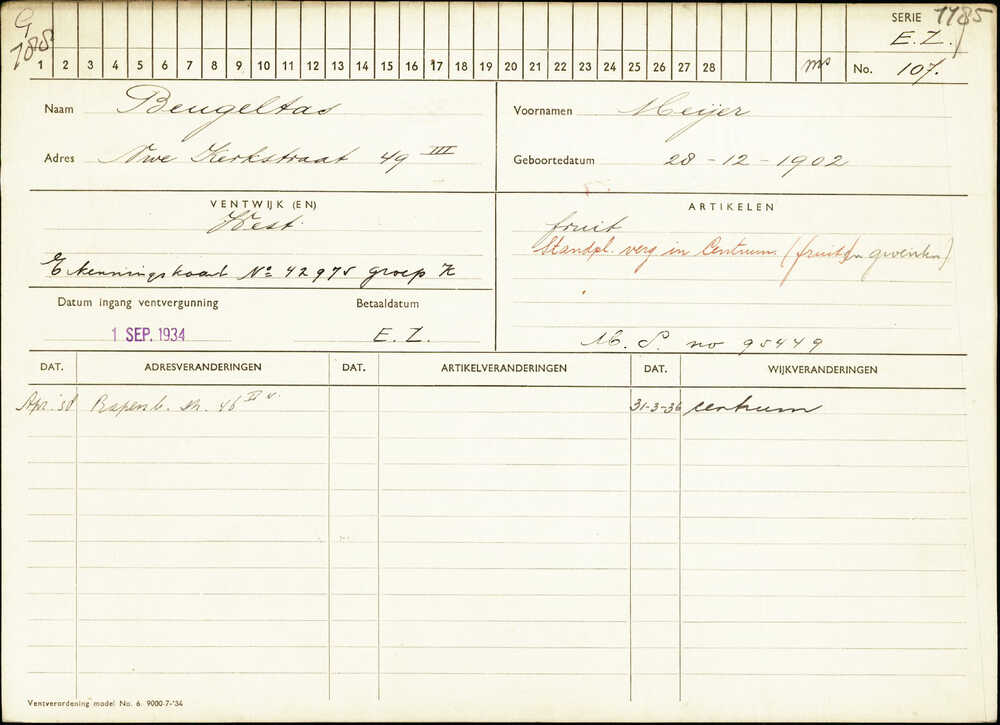 G
788
SERIE 1185
E. Z.
1 2 3 4 5 6 7 8 9 10 11 12 13 14 15 16 17 18 19 20 21 22 23 24 25 26 27 28 No. 107.
Naam Beugeltas
Voornamen Meijer
Adres Nwe Kerkstraat 49 III
Geboortedatum 28-12-1902
VENTWIJK (EN)
West.
Erkenningskaart No 42975 groep K
ARTIKELEN
fruit
Standpl. verg in Centrum. (fruit en groenten)
Datum ingang ventvergunning
Betaaldatum
1 SEP. 1934
E. Z.
M. S. no 95449
DAT. ADRESVERANDERINGEN DAT. ARTIKELVERANDERINGEN DAT. WIJKVERANDERINGEN
Apr. '38 Rapenb. str. 46 II v.
31-3-36 centrum
Ventverordening model No. 6. 9000-7-'34